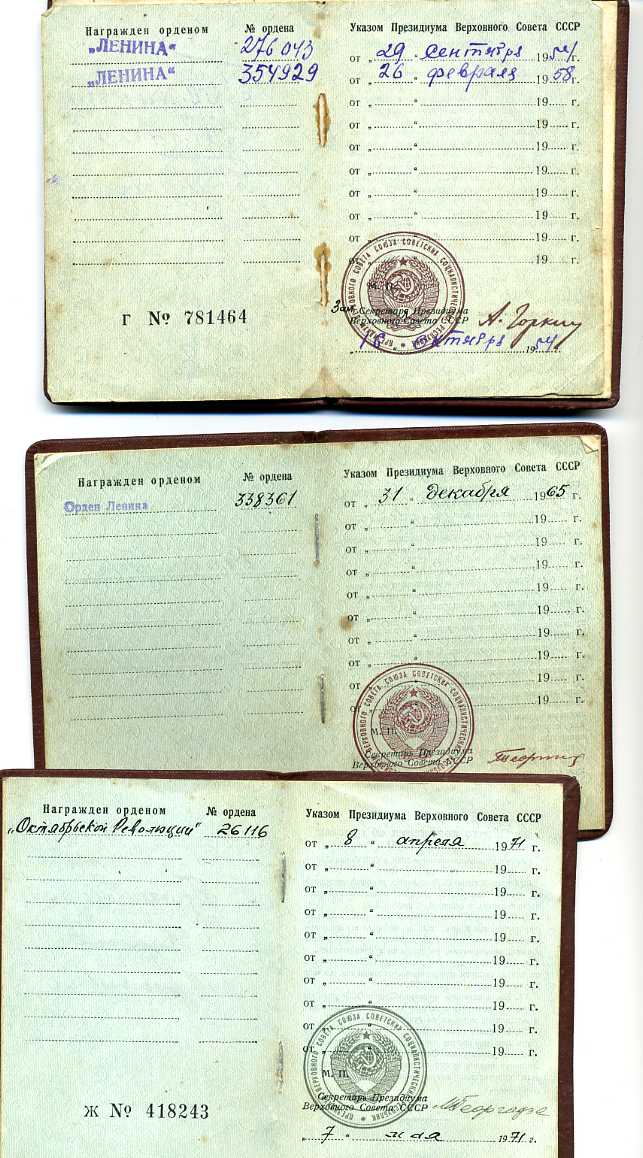 Награжден орденом № ордена Указом Президиума Верховного Совета СССР
„ЛЕНИНА“ 276043 от „29“ сентября 1954 г.
„ЛЕНИНА“ 354929 от „26“ февраля 1958 г.
от „ “ 19 г.
от „ “ 19 г.
от „ “ 19 г.
от „ “ 19 г.
от „ “ 19 г.
от „ “ 19 г.
от „ “ 19 г.
от „ “ 19 г.
М. П.
Г № 781464
Зам. Секретарь Президиума
Верховного Совета СССР А. Горкин
1954
Награжден орденом № ордена Указом Президиума Верховного Совета СССР
Орден Ленина 338361 от „31“ декабря 1965 г.
от „ “ 19 г.
от „ “ 19 г.
от „ “ 19 г.
от „ “ 19 г.
от „ “ 19 г.
от „ “ 19 г.
от „ “ 19 г.
от „ “ 19 г.
от „ “ 19 г.
М. П.
Секретарь Президиума
Верховного Совета СССР
Награжден орденом № ордена Указом Президиума Верховного Совета СССР
„Октябрьской Революции“ 26116 от „8“ апреля 1971 г.
от „ “ 19 г.
от „ “ 19 г.
от „ “ 19 г.
от „ “ 19 г.
от „ “ 19 г.
от „ “ 19 г.
от „ “ 19 г.
от „ “ 19 г.
от „ “ 19 г.
М. П.
Ж № 418243
Секретарь Президиума
Верховного Совета СССР
„7“ мая 1971 г.